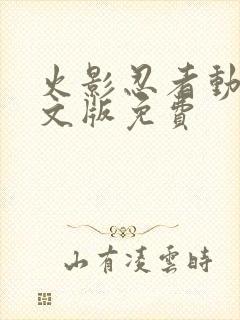 火影忍者動
文版免費
山有凌雲時